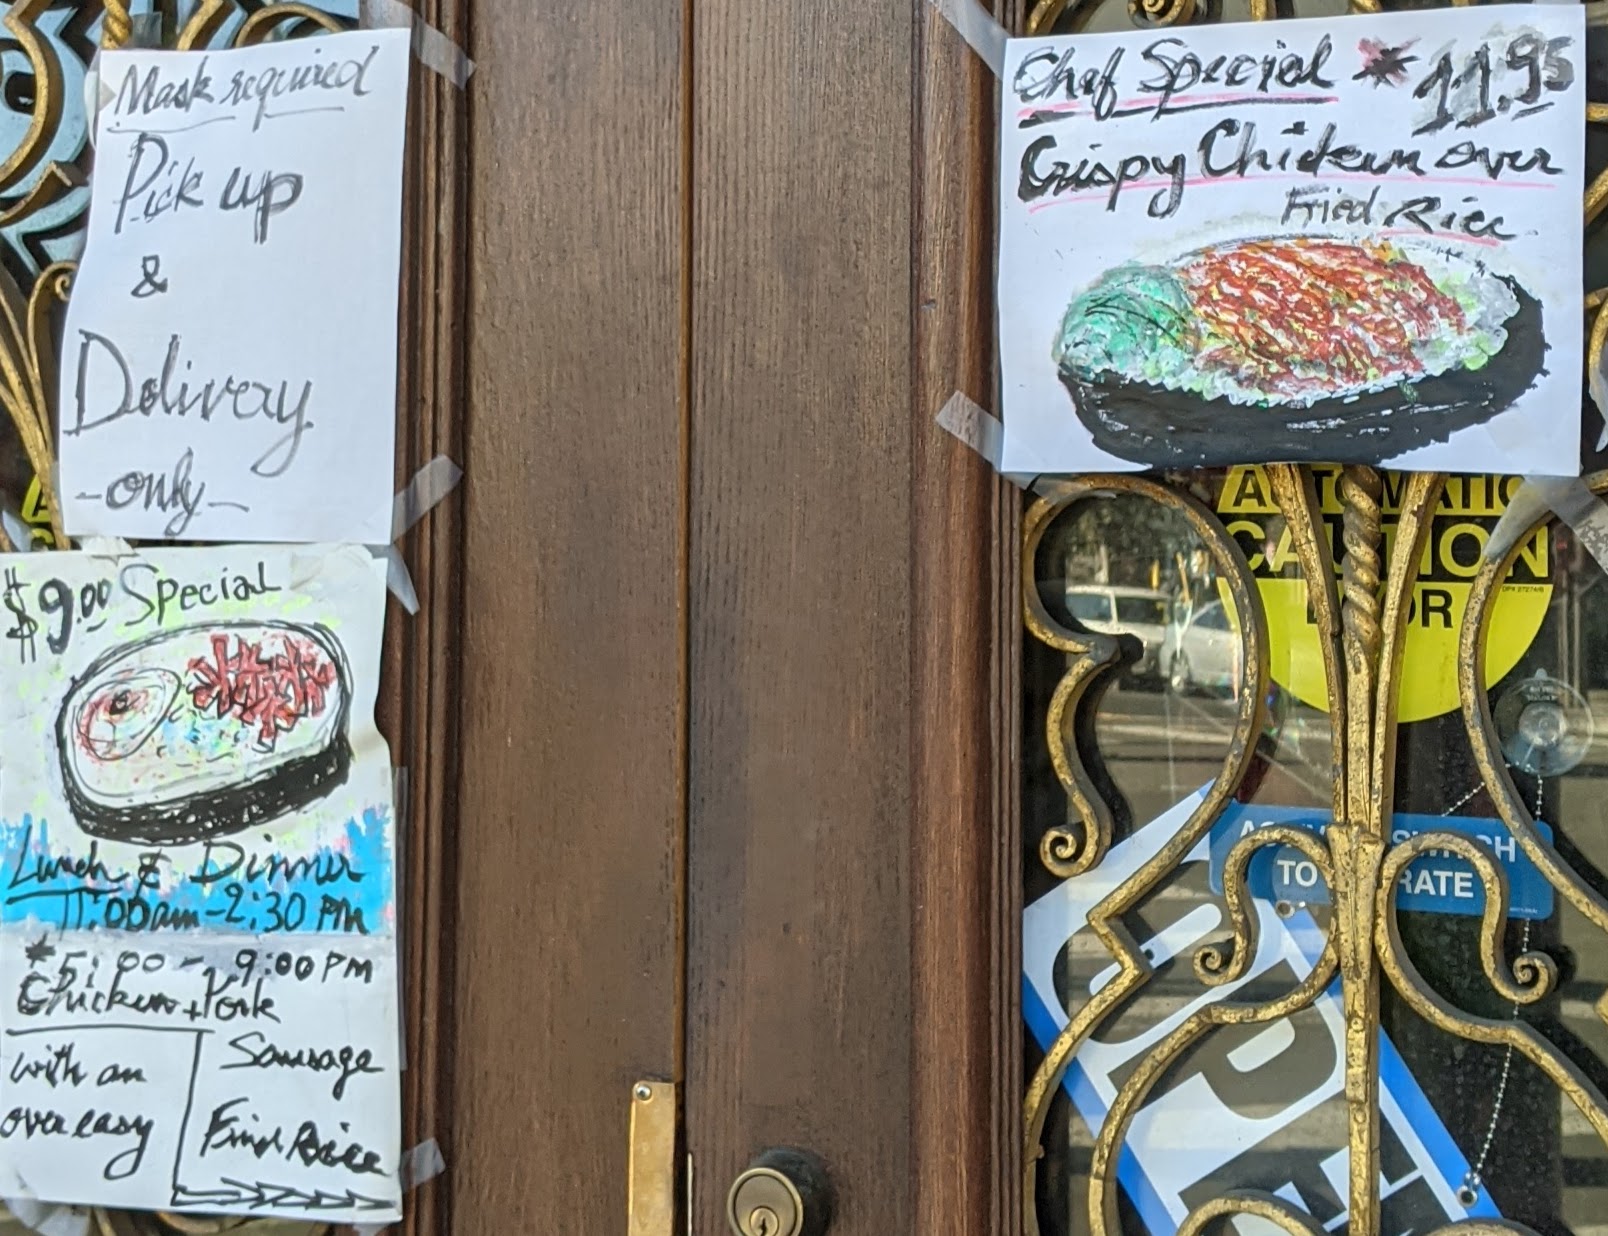 Mask required
Pick up
&
Delivery
-only-
$9.00 Special
Lunch & Dinner
11:00am-2:30 PM
*5:00-9:00PM
Chicken + Pork
with an
over easy
Sausage
Fried Rice
Chef Special * 11.95
Crispy Chicken over
Fried Rice
AUTOMATIC
CAUTION
DOOR
SWITCH
TO
OPEN